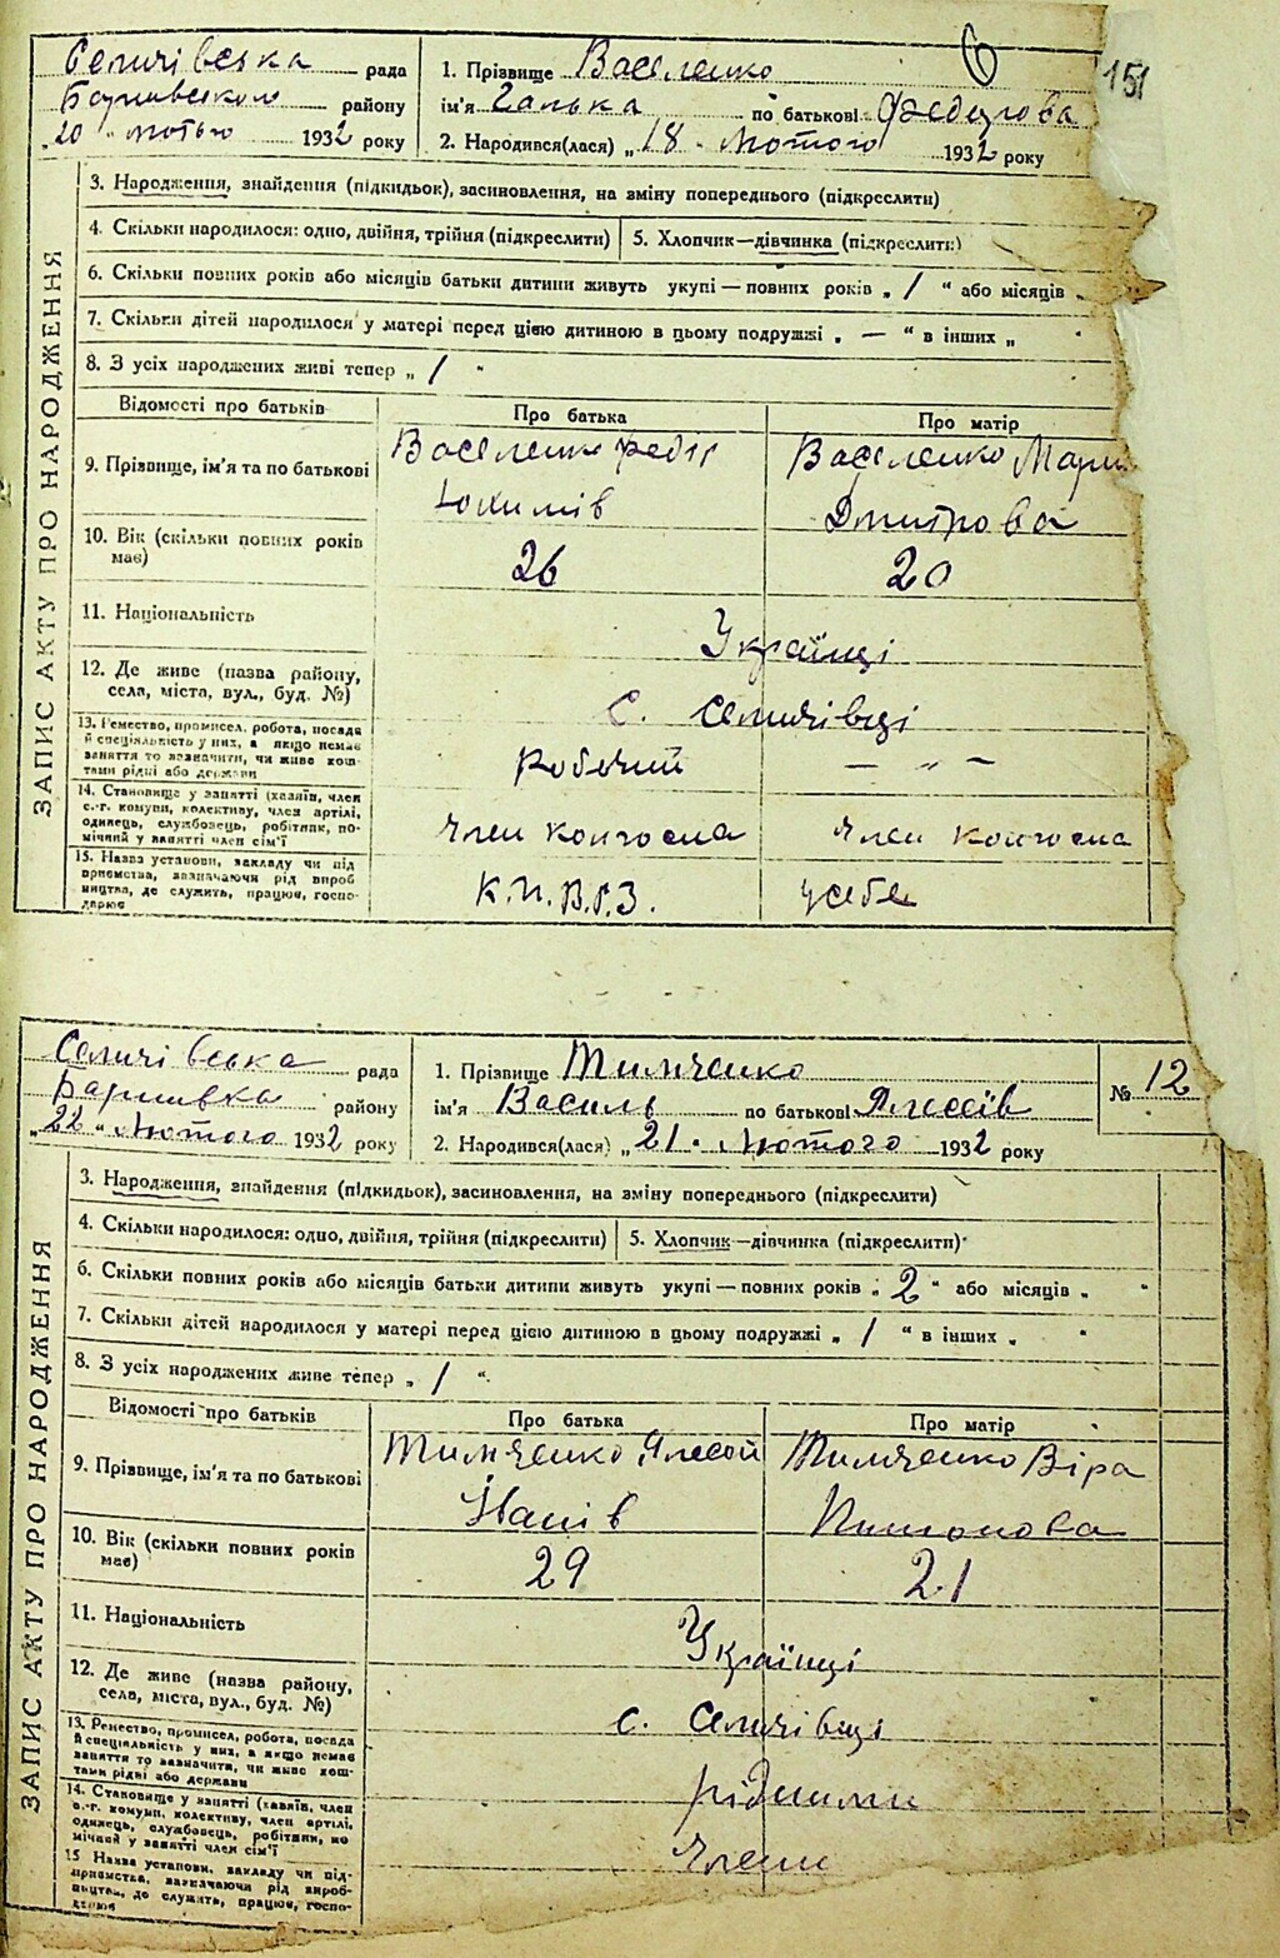 6
151
Селичівська рада
Баришевського району
„20 " лютого 1932 року
1. Прізвище Василенко
ім'я Галька по батькові Федорова
2. Народився(лася) „18 " Лютого 1932 року
ЗАПИС АКТУ ПРО НАРОДЖЕННЯ
3. Народження, знайдення (підкидьок), засиновлення, на зміну попереднього (підкреслити)
4. Скільки народилося: одно, двійня, трійня (підкреслити)
5. Хлопчик—дівчинка (підкреслити)
6. Скільки повних років або місяців батьки дитини живуть укупі — повних років „ 1 " або місяців „
7. Скільки дітей народилося у матері перед цією дитиною в цьому подружжі „ — " в інших „ "
8. З усіх народжених живі тепер „ 1 "
Відомості про батьків
Про батька
Про матір
9. Прізвище, ім'я та по батькові
Василенко Федір
Юхимів
Василенко Мари
Дмитрова
10. Вік (скільки повних років має)
26
20
11. Національність
Українці
12. Де живе (назва району, села, міста, вул., буд. №)
с. Селичівці
13. Ремество, промисел, робота, посада й спеціяльність у них, а якщо немає заняття то зазначити, чи живе коштами рідні або держави
Робочий
— „ —
14. Становище у занятті (хазяїн, член с.-г. комуни, колективу, член артілі, одинець, службовець, робітник, помічний у занятті член сім'ї
Член колгоспа
Член колгоспа
15. Назва установи, закладу чи підприємства, зазначаючи рід виробництва, де служить, працює, господарює
К.П.В.Р.З.
усебе
Селичівська рада
Баришівка району
„22 " Лютого 1932 року
1. Прізвище Тимченко
ім'я Василь по батькові Олексіїв
2. Народився(лася) „21 " Лютого 1932 року
№ 12
ЗАПИС АКТУ ПРО НАРОДЖЕННЯ
3. Народження, знайдення (підкидьок), засиновлення, на зміну попереднього (підкреслити)
4. Скільки народилося: одно, двійня, трійня (підкреслити)
5. Хлопчик—дівчинка (підкреслити)
6. Скільки повних років або місяців батьки дитини живуть укупі — повних років „ 2 " або місяців „ "
7. Скільки дітей народилося у матері перед цією дитиною в цьому подружжі „ 1 " в інших „ "
8. З усіх народжених живе тепер „ 1 "
Відомості про батьків
Про батька
Про матір
9. Прізвище, ім'я та по батькові
Тимченко
Іванів
Тимченко Віра
10. Вік (скільки повних років має)
29
21
11. Національність
Українці
12. Де живе (назва району, села, міста, вул., буд. №)
с. Селичівці
13. Ремество, промисел, робота, посада й спеціяльність у них, а якщо немає заняття то зазначити, чи живе коштами рідні або держави
рідними
14. Становище у занятті (хазяїн, член с.-г. комуни, колективу, член артілі, одинець, службовець, робітник, помічний у занятті член сім'ї
Члени
15 Назва установи, закладу чи підприємства, зазначаючи рід виробництва, де служить, працює, господарює